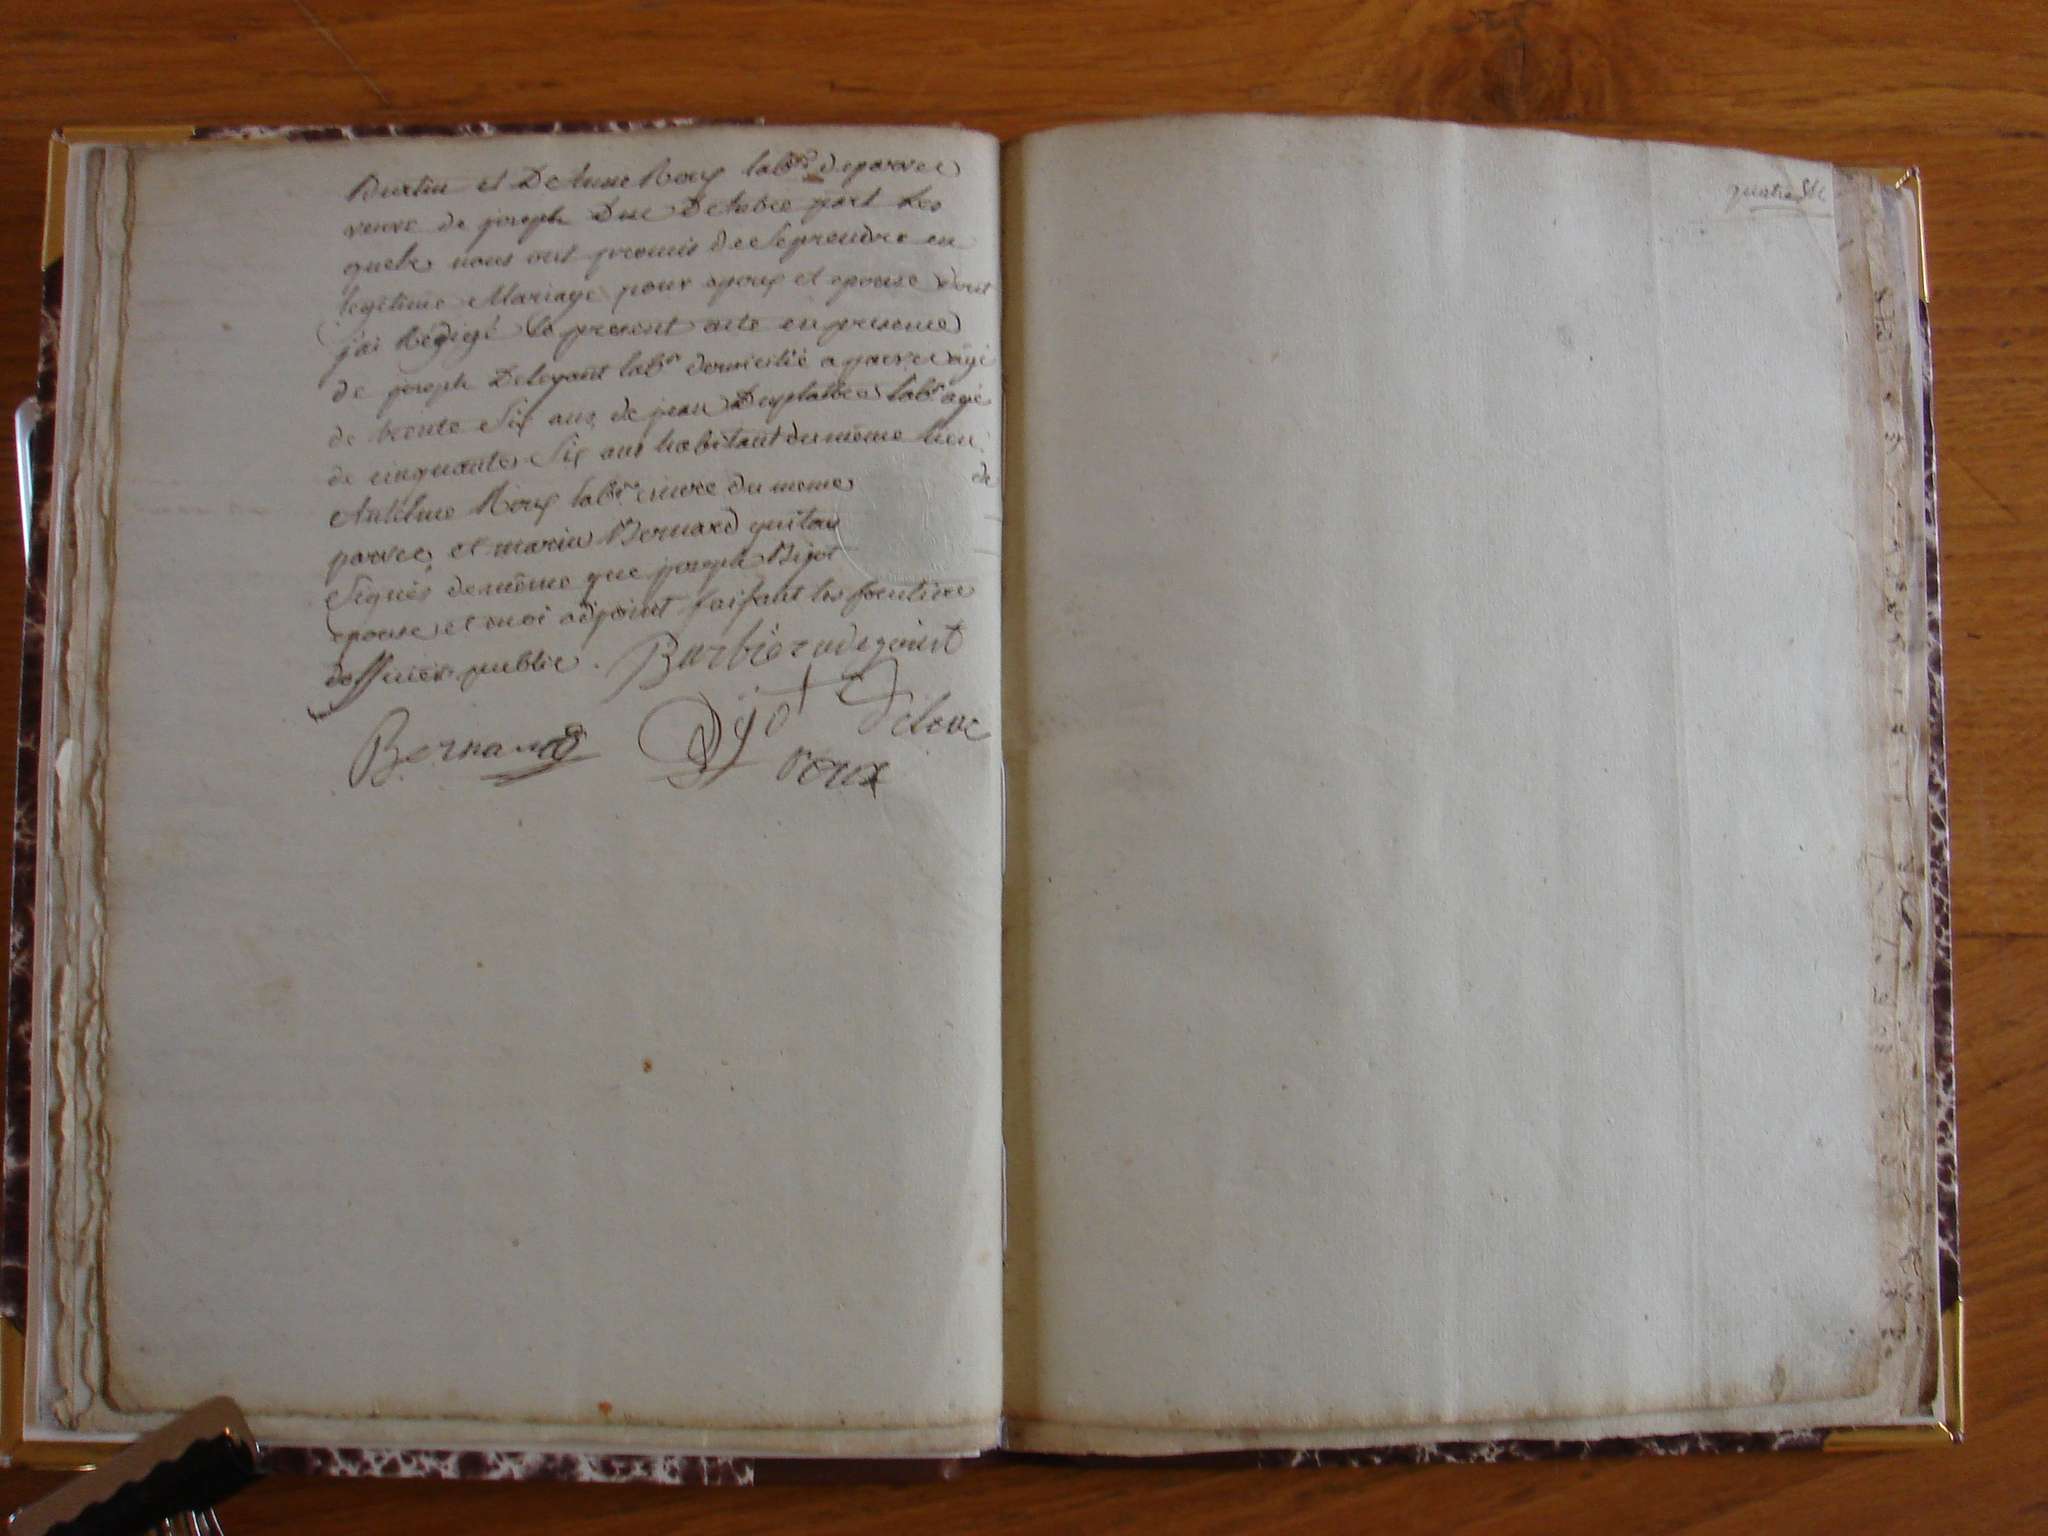 Burtin et De Anne Roux lab.rs de parves
veuve de joseph Duc D'Autre part Les
quels nous ont promis de Se prendre en
legitime Mariage pour epoux et epouse dont
j'ai Rédigé le present acte en presence
de joseph Deleyant lab.r domicilié a parves âgé
de trente Six ans, de jean Duplatre lab.r âgé
de cinquante Six ans habitant du même lieu
de
Antelme Roux lab.r du meme
parves, et marin Bernard qui ont
Signés de même que joseph Bigot
epoux, et moi adjoint faisant les fonctions
d'officier public. Barbier adejoint
Bernard Bijot Deleae
roux
quatre